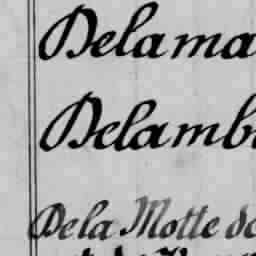 Delama
Delamb
De la Motte de